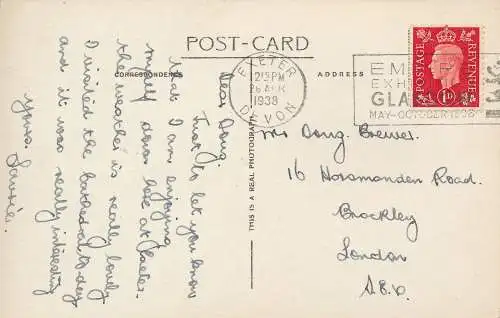 POST-CARD
CORRESPONDENCE
ADDRESS
EXETER
2:15 PM
26 APR
1938
DEVON
EM
EXH
GLA
MAY-OCTOBER 1938
POSTAGE
REVENUE
1D
THIS IS A REAL PHOTOGRAPH
Dear Doug.
Just to let you know
that I am enjoying
myself down here at Exeter.
the weather is really lovely
I visited the cathedral to-day
and it was really interesting
yours. Laurie.
Mr Doug. Brewer.
16 Horsmonden Road.
Brockley
London
S.E.4.